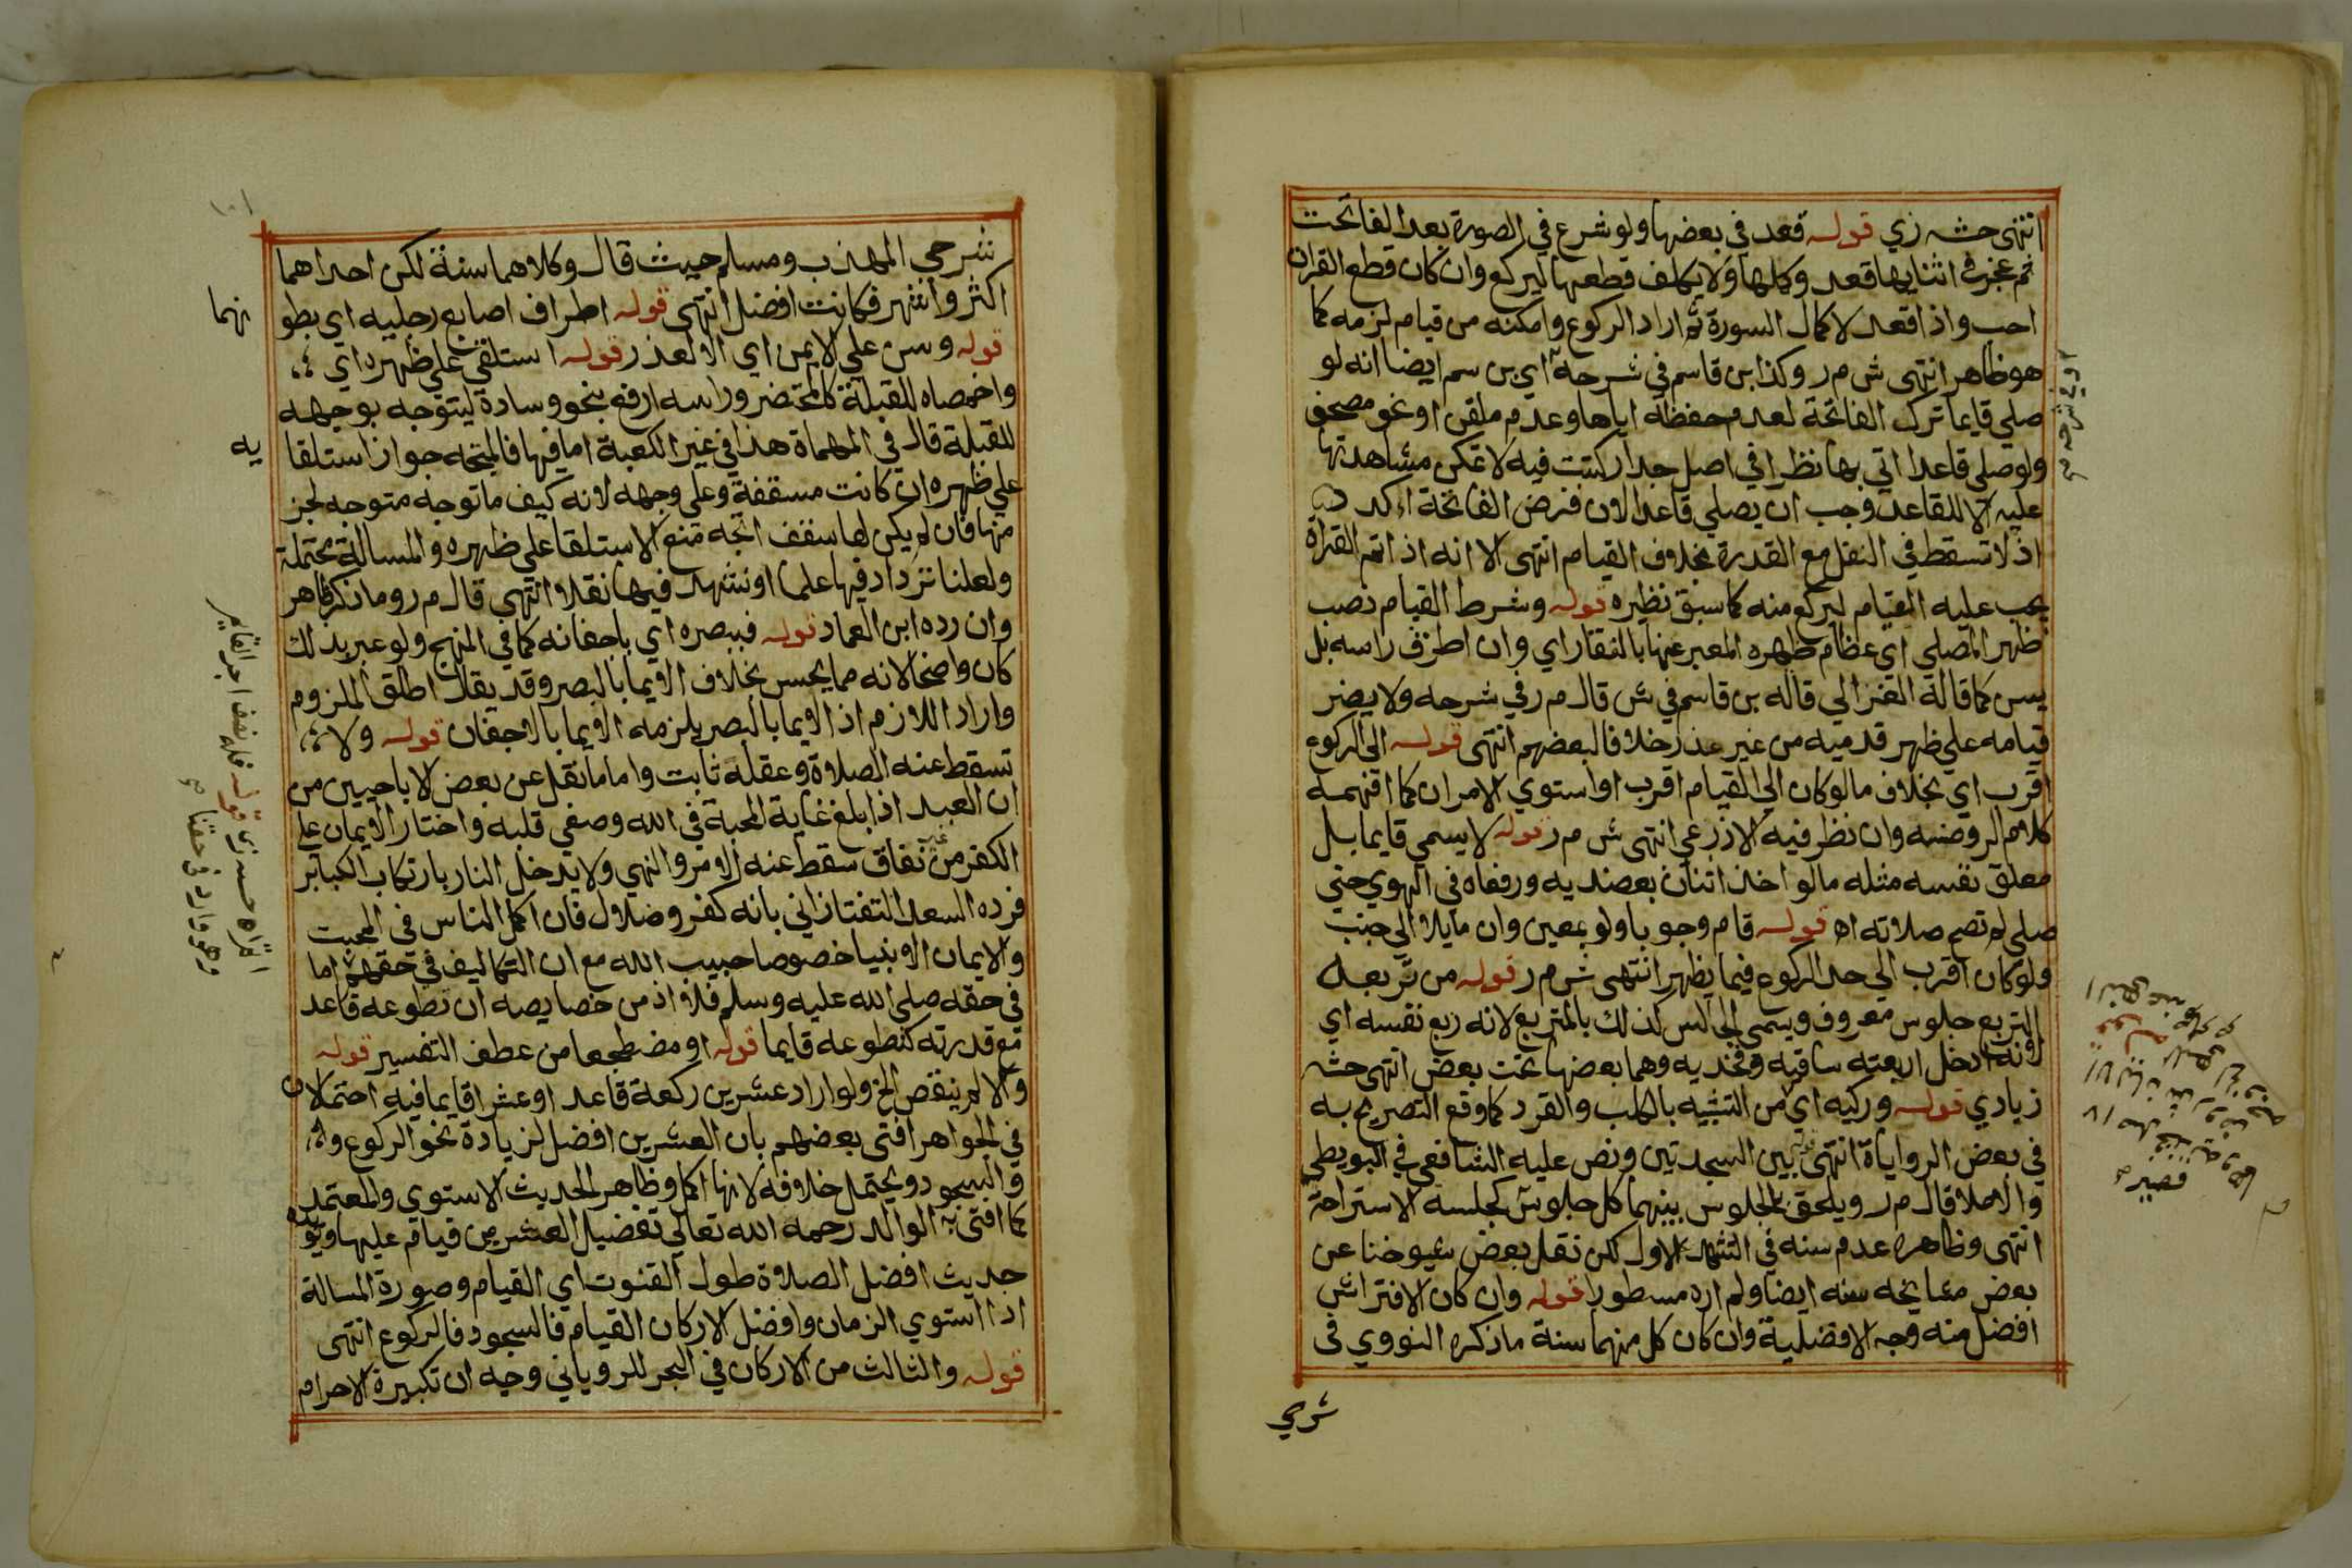 انتهى حشه زي قوله قعد في بعضها ولو شرع في الصورة بعد الفاتحت
ثم عجز في اثنايها قعد وكملها ولا يكلف قطعها ليركع وان كان قطع القران
احب واذا قعد لاكمال السورة ثم اراد الركوع وامكنه من قيام لزمه كما
هو ظاهر انتهى ش م ر وكذا بن قاسم في شرحه اي بن سم ايضا انه لو
صلي قايما ترك الفاتحة لعدم حفظه اياها وعدم ملقن او نحو مصحف
ولو صلي قاعدا اتي بها نظرا في اصل جدار كتبت فيه لا تمكن مشاهدتها
عليه الا للقاعد وجب ان يصلي قاعدا لان فرض الفاتحة اكد
اذ لا تسقط في النفل مع القدرة بخلاف القيام انتهى الا انه اذا اتم القراة
يجب عليه القيام ليركع منه كما سبق نظيره قوله وشرط القيام نصب
ظهر المصلي اي عظام ظهره المعبر عنها بالفقار اي وان اطرق راسه بل
يسن كما قاله الغزالي قاله بن قاسم في ش قال م ر في شرحه ولا يضر
قيامه علي ظهر قدميه من غير عذر خلافا لبعضهم انتهى قوله الي الركوع
اقرب اي بخلاف ما لو كان الي القيام اقرب او استوي الامران كما افهمه
كلام الروضه وان نظر فيه الاذرعي انتهى ش م ر قوله لا يسمي قايما بل
معلق نفسه مثله ما لو اخذ اثنان بعضديه ورفعاه في الهوي حتي
صلي لم تصح صلاته اه قوله قام وجوبا ولو بمعين وان مايلا الي جنب
ولو كان اقرب الي حد الركوع فيما يظهر انتهى ش م ر قوله من تربعه
التربع جلوس معروف ويسمي الجالس كذلك بالمتربع لانه ربع نفسه اي
لانه ادخل اربعته ساقيه وفخديه وهما بعضها تحت بعض انتهى حشه
زيادي قوله وركيه اي من التشبيه بالكلب والقرد كما وقع التصريح به
في بعض الرواياة انتهى بين السجدتين ونص عليه الشافعي في البويطي
والاملا قال م ر ويلحق بالجلوس بينهما كل جلوس كجلسه الاستراحة
انتهى وظاهره عدم سنه في التشهد الاول لكن نقل بعض شيوخنا عن
بعض مشايخه سنه ايضا ولم اره مسطورا قوله وان كان الافتراش
افضل منه وجه الافضلية وان كان كل منهما سنة ما ذكره النووي في
شرحي
شرحي المهذب ومسلم حيث قال وكلاهما سنة لكن احداهما
اكثر واشهر فكانت افضل انتهى قوله اطراف اصابع رجليه اي بطو
نهما
قوله وسن علي الايمن اي الا لعذر قوله استلقي علي ظهره اي
واخمصاه للقبلة كالمحتضر وراسه ارفع بنحو وسادة ليتوجه بوجهه
للقبلة قال في المهماة هذا في غير الكعبة اما فيها فالمتجه جواز استلقا
يه
علي ظهره ان كانت مسقفة وعلي وجهه لانه كيف ما توجه متوجه لجز
منها فان لم يكن لها سقف اتجه منع الاستلقا علي ظهره والمسالة محتملة
ولعلنا نزداد فيها علما او نشهد فيها نقلا انتهى قال م ر وما ذكره ظاهر
وان رده ابن العماد قوله فببصره اي باجفانه كما في المنهج ولو عبر بذلك
كان واضحا لانه مما يحسن بخلاف الايما بالبصر وقد يقال اطلق الملزوم
واراد اللازم اذ الايما بالبصر يلزمه الايما بالاجفان قوله ولا
تسقط عنه الصلاة وعقله ثابت واما ما نقل عن بعض الاباحيين من
ان العبد اذا بلغ غاية المحبة في الله وصفي قلبه واختار الايمان علي
الكفر من غير نفاق سقط عنه الامر والنهي ولا يدخل النار بارتكاب الكباير
فرده السعد التفتازاني بانه كفر وضلال فان اكمل الناس في المحبت
والايمان الانبيا خصوصا حبيب الله مع ان التكاليف في حقهم اما
في حقه صلي الله عليه وسلم فلا اذ من خصايصه ان تطوعه قاعد
مع قدرته كتطوعه قايما قوله او مضطجعا من عطف التفسير قوله
والا لم ينقص الخ ولو اراد عشرين ركعة قاعد او عشرا قايما فيه احتمالان
في الجواهر افتي بعضهم بان العشرين افضل لزيادة نحو الركوع
والسجود ويحتمل خلافه لانها اكمل وظاهر الحديث الاستوي والمعتمد
كما افتى به الوالد رحمه الله تعالي تفضيل العشر من قيام عليها ويويده
حديث افضل الصلاة طول القنوت اي القيام وصورة المسالة
اذا استوي الزمان وافضل الاركان القيام فالسجود فالركوع انتهى
قوله والثالث من الاركان في البحر للروياني وجيه ان تكبيرة الاحرام
قوله فله نصف اجر القايم